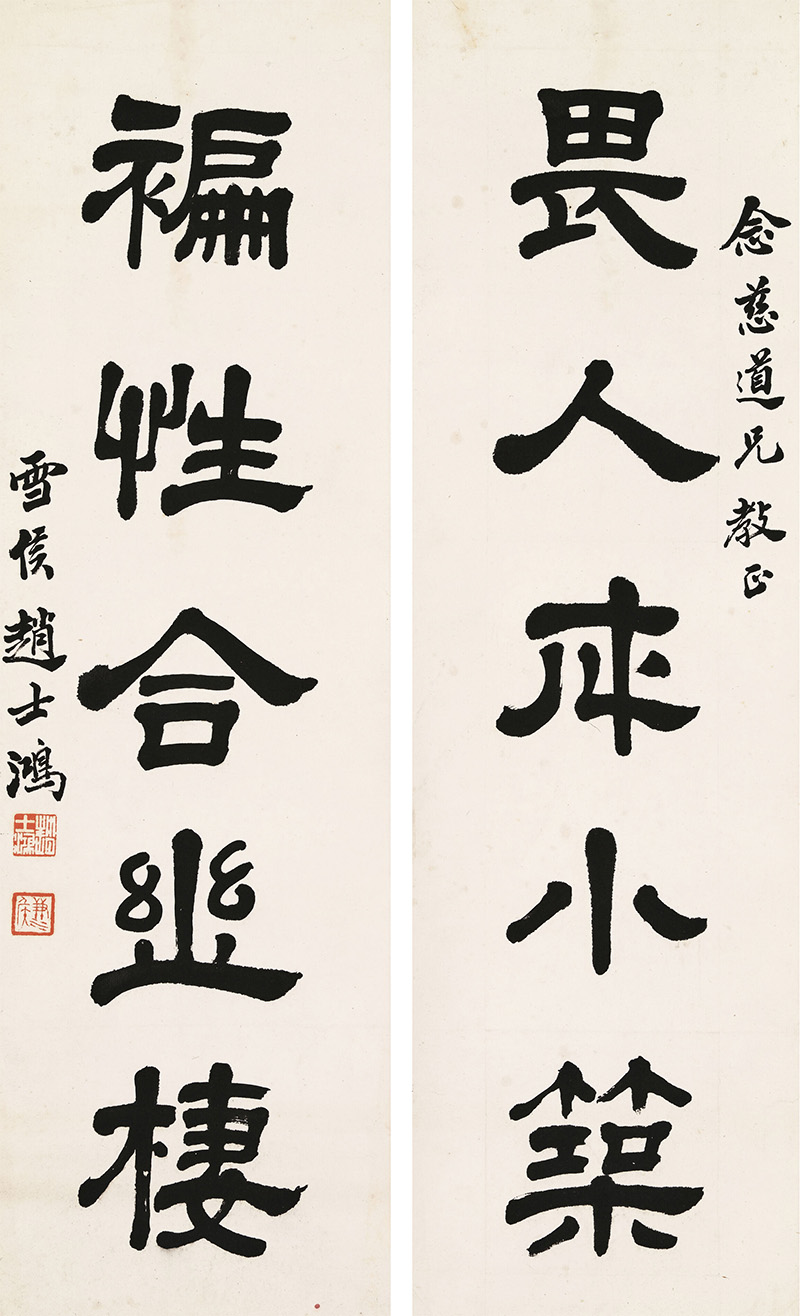 念慈道兄教正
畏人成小築
褊性合幽棲
雪侯趙士鴻
趙士鴻